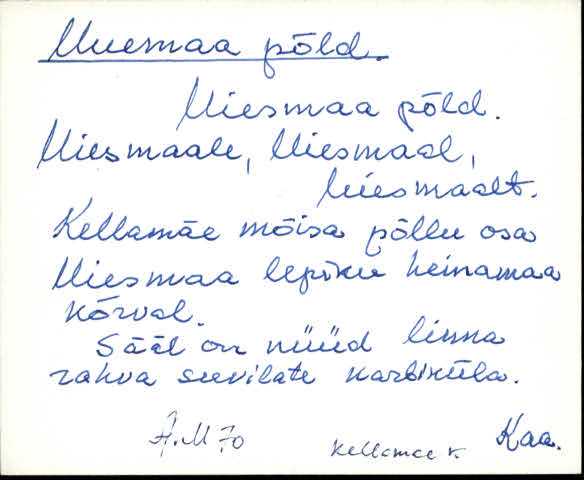 Uuemaa põld.
Uiesmaa põld.
Uiesmaale, Uiesmaal,
Uiesmaalt.
Kellamäe mõisa põllu osa
Uiesmaa lepiku heinamaa
kõrval.
Sääl on nüüd linna
rahva suvilate karbiküla.
A.M 70 Kellamäe k. Kaa.